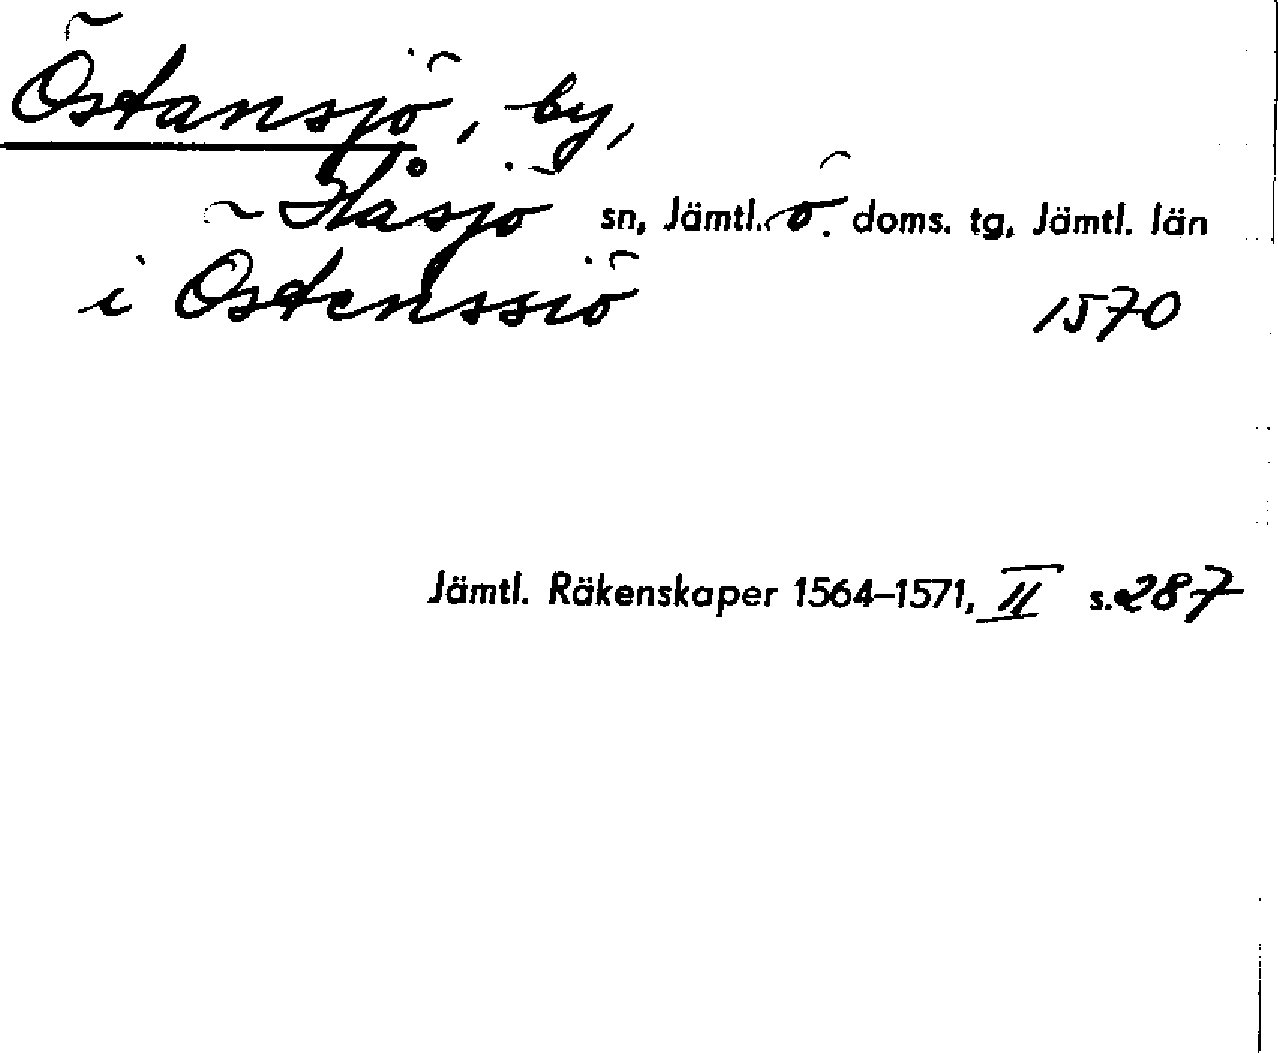 Östansjö, by,
Håsjö sn, Jämtl. ö. doms. tg, Jämtl. län
i Ostenssiö 1570
Jämtl. Räkenskaper 1564–1571, II s. 287